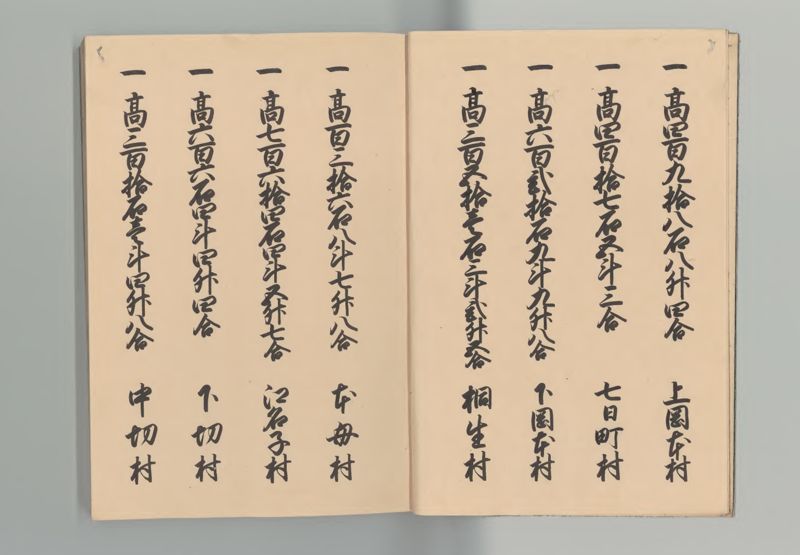 一 高四百九拾八石八升四合 上岡本村
一 高四百拾七石五斗三合 七日町村
一 高六百弐拾石九斗九升八合 下岡本村
一 高三百五拾壱石三斗弐升五合 桐生村
一 高百三拾六石八斗七升八合 本母村
一 高七百六拾四石四斗五升七合 江名子村
一 高六百六石四斗四升四合 下切村
一 高三百拾石壱斗四升八合 中切村